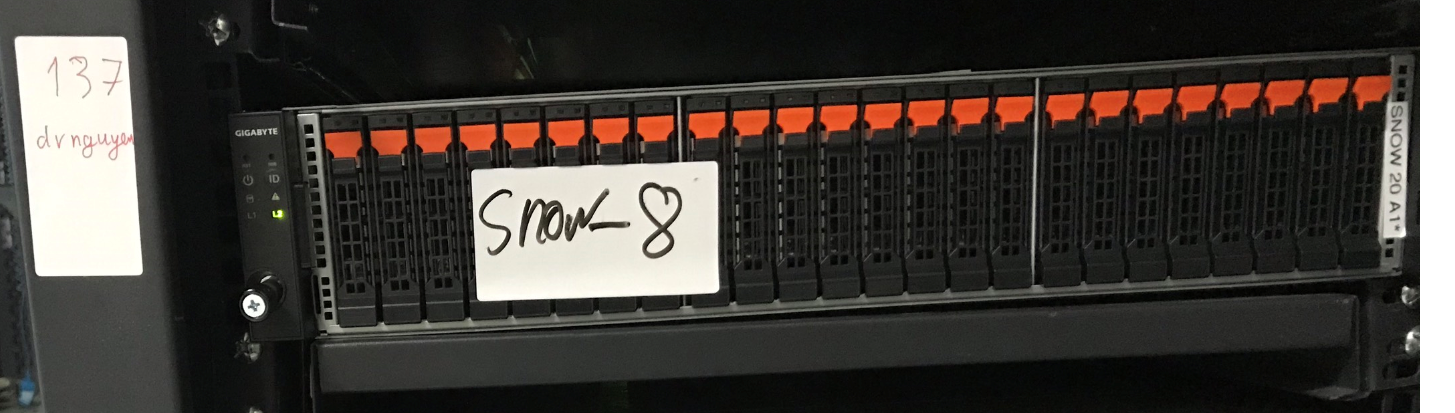 137
dvnguyen
GIGABYTE
ID
L1 L2
Snow-8
SNOW 20 A1*